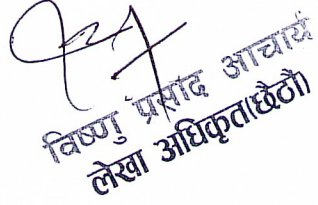 विष्णु प्रसाद आचार्य
लेखा अधिकृत(छैठौं)